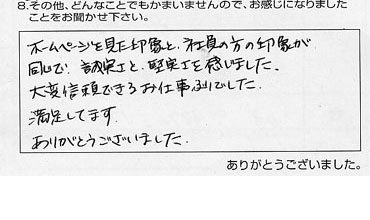 8.その他、どんなことでもかまいませんので、お感じになりました
ことをお聞かせ下さい。
ホームページを見た印象と、社員の方の印象が
同じで、誠実さと、堅実さを感じました。
大変信頼できるお仕事ぶりでした。
満足してます。
ありがとうございました。
ありがとうございました。